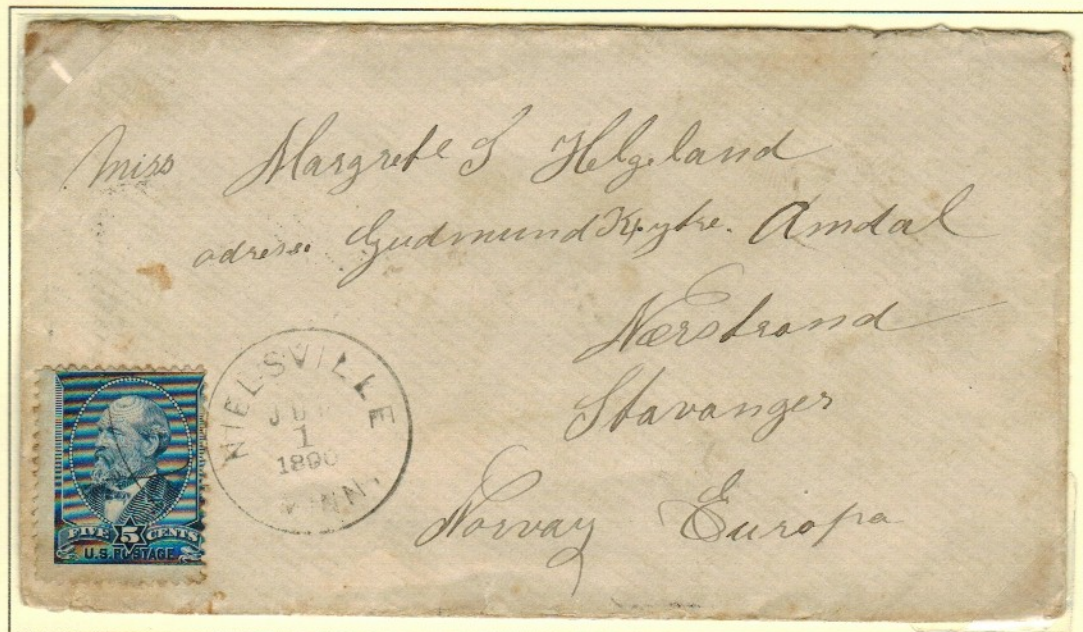 Miss Margrete S Helgeland
adresse Gudmund Amdal
Nærstrand
Stavanger
Norway Europa
NIELSVILLE
1
1890
MINN.
FIVE 5 CENTS
U.S. POSTAGE